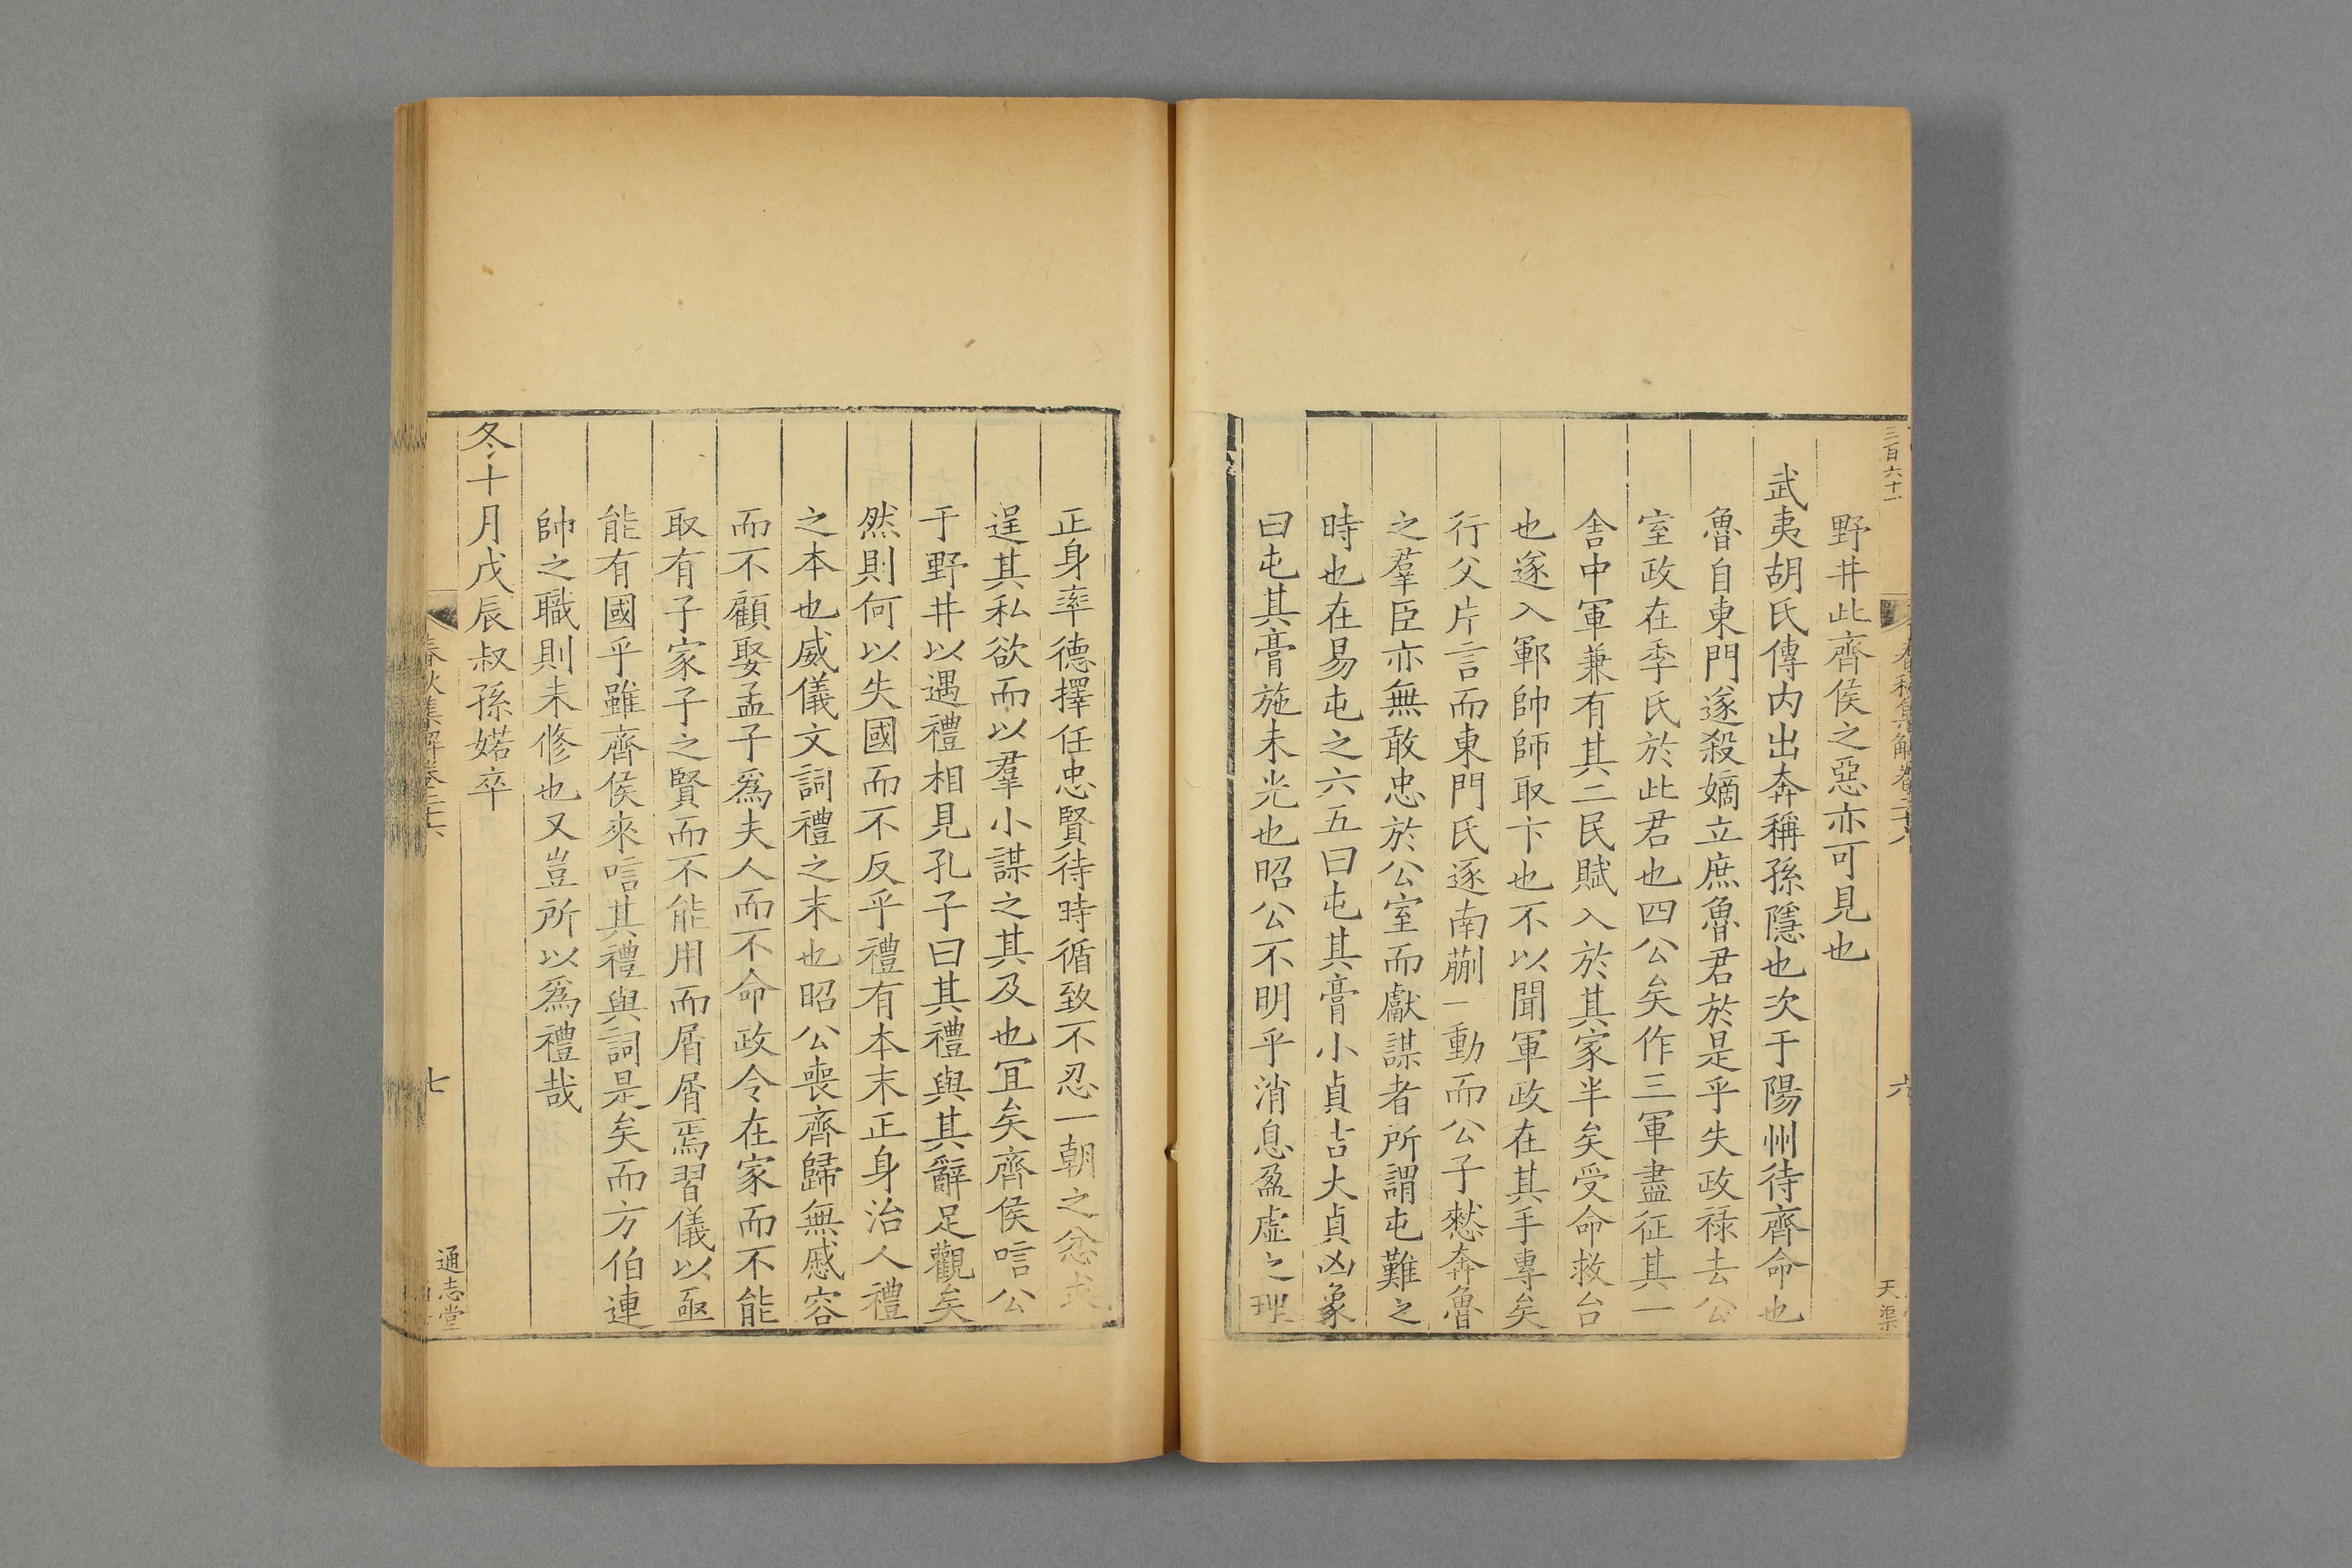 三百六十一
春秋集解卷二十六
六
天渠
野井此齊侯之惡亦可見也
武夷胡氏傳内出奔稱孫隱也次于陽州待齊命也
魯自東門遂殺嫡立庶魯君於是乎失政禄去公
室政在季氏於此君也四公矣作三軍盡征其一
舍中軍兼有其二民賦入於其家半矣受命救台
也遂入鄆帥師取卞也不以聞軍政在其手專矣
行父片言而東門氏逐南蒯一動而公子憖奔魯
之羣臣亦無敢忠於公室而獻謀者所謂屯難之
時也在易屯之六五曰屯其膏小貞吉大貞凶象
曰屯其膏施未光也昭公不明乎消息盈虚之理
正身率德擇任忠賢待時循致不忍一朝之忿求
逞其私欲而以羣小謀之其及也宜矣齊侯唁公
于野井以遇禮相見孔子曰其禮與其辭足觀矣
然則何以失國而不反乎禮有本末正身治人禮
之本也威儀文詞禮之末也昭公喪齊歸無慼容
而不顧娶孟子爲夫人而不命政令在家而不能
取有子家子之賢而不能用而屑屑焉習儀以亟
能有國乎雖齊侯來唁其禮與詞是矣而方伯連
帥之職則未修也又豈所以爲禮哉
冬十月戊辰叔孫婼卒
春秋集解卷二十六
七
通志堂